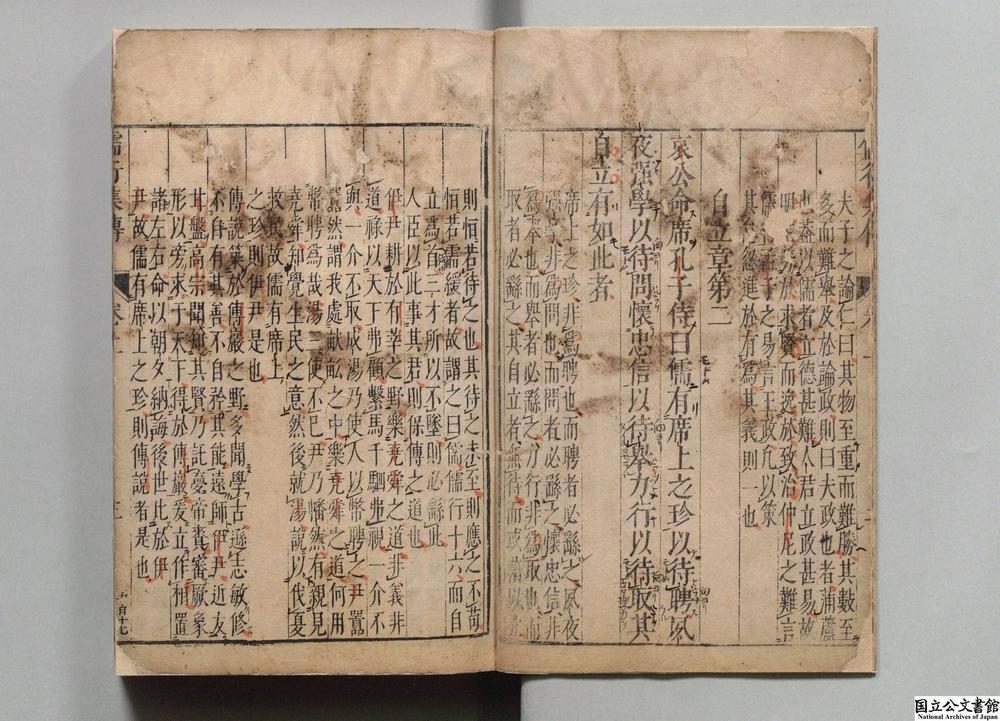 夫子之論仁曰其物至重而難勝其數至
多而難舉及於論政則曰夫政也者蒲蘆
也蓋以儒者立德甚難人君立政甚易故
明於求賢而逸於致治仲尼之難言
儒子之易言王政凡以策
其忽進於有為其義則一也
自立章第二
哀公命席孔子侍曰儒有席上之珍以待聘夙
夜強學以待問懷忠信以待舉力行以待取其
自立有如此者
席上之珍非為聘也而聘者必繇之夙夜
強學非為問也而問者必繇之懷忠信非
為舉也而舉者必繇之力行非為取也而
取者必繇之其自立者無待而或藉以
則恒若待之也其待之未至則應之不苟
恒若儒緩者故謂之曰儒儒行十六而自
立為首三才所以不墜則必繇此
人臣以此事其君則保傅之道也
伊尹耕於有莘之野樂堯舜之道非義非
道祿以天下弗顧繫馬千駟弗視一介不
與一介不取成湯乃使人以幣聘之尹囂
囂然謂我處畎畝之中樂堯舜之道何用
幣聘為哉湯三使不已尹乃幡然有親見
堯舜知覺生民之意然後就湯說以伐夏
救民故儒有席上
之珍則伊尹是也
傅說築於傅巖之野多聞學古遜志敏修
不自有其善不自矜其能遠師伊尹近友
甘盤高宗聞知其賢乃託夢帝賚審厥象
形以旁求于天下得於傅巖爰立作相置
諸左右命以朝夕納誨後世比於伊
尹故儒有席上之珍則傅說者是也
儒行集傳
卷上
三
国立公文書館
National Archives of Japan